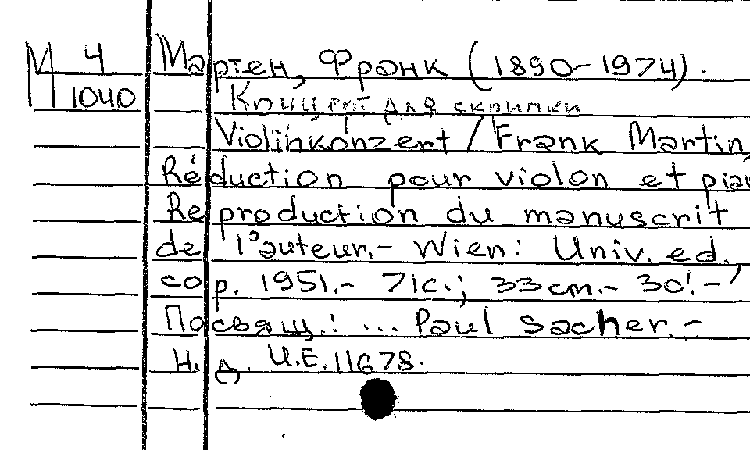 М 4
1040
Мартен, Франк (1890-1974).
Концерт для скрипки
Violinkonzert / Frank Martin,
Réduction pour violon et pian
Reproduction du manuscrit
de l'auteur.- Wien: Univ. ed.,
cop. 1951.- 71с.; 33cm.- 30'.-
Посвящ.: ... Paul Sacher.-
Н. д. U.E.11678.